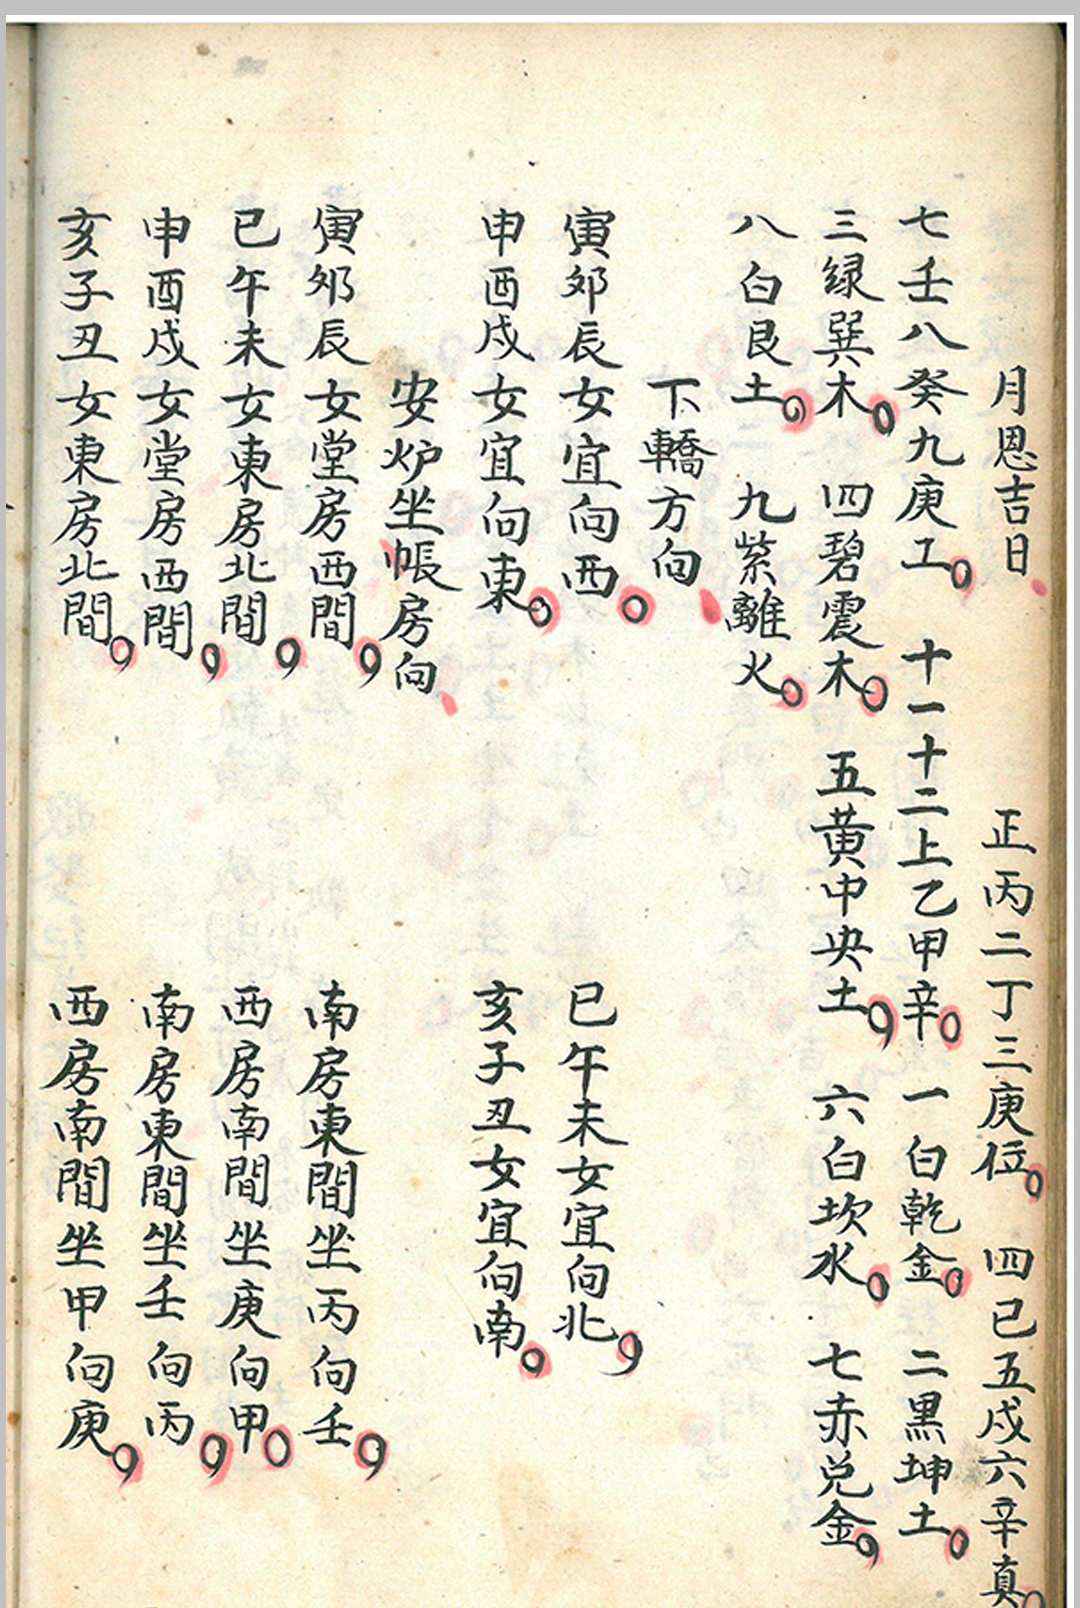 月恩吉日 正丙二丁三庚位 四己五戍六辛真
七壬八癸九庚工 十一十二上乙甲辛 一白乾金 二黑坤土
三绿巽木 四碧震木 五黄中央土 六白坎水 七赤兑金
八白艮土 九紫離火
下轎方向
寅夘辰女宜向西 巳午未女宜向北
申酉戍女宜向東 亥子丑女宜向南
安炉坐帳房向
寅夘辰女堂房西間 南房東間坐丙向壬
巳午未女東房北間 西房南間坐庚向甲
申酉戍女堂房西間 南房東間坐壬向丙
亥子丑女東房北間 西房南間坐甲向庚